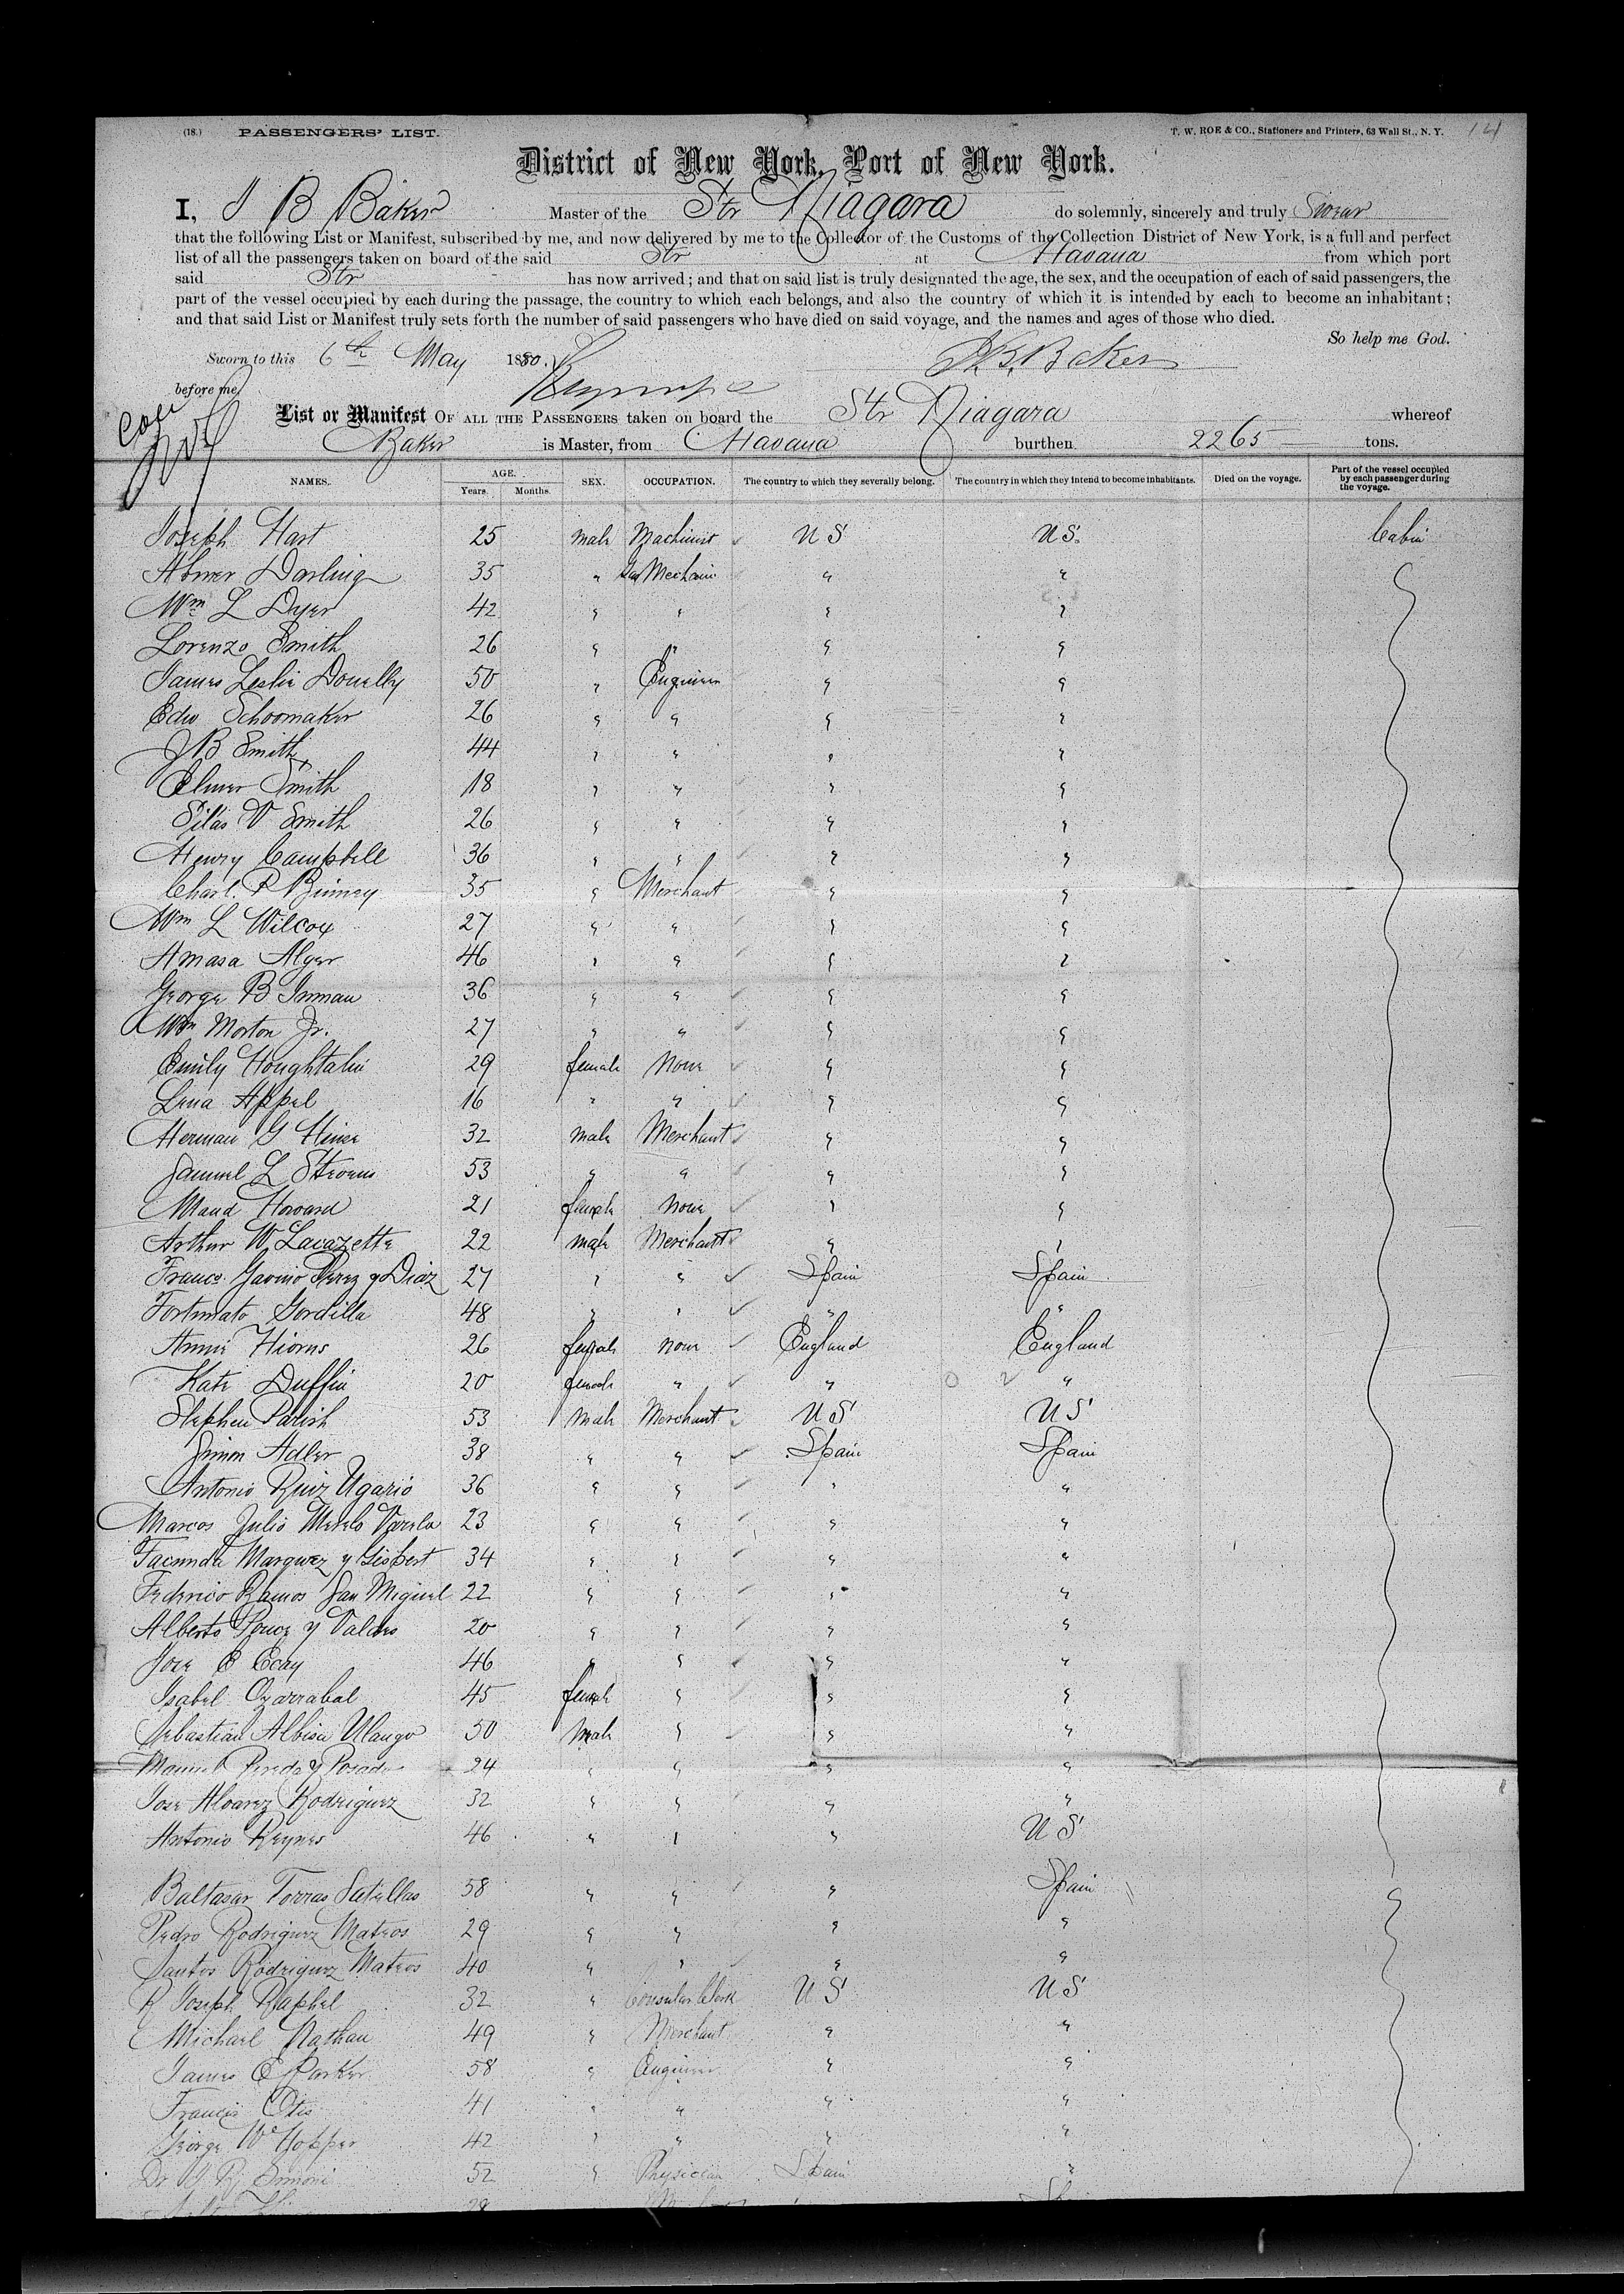 (18.) PASSENGERS' LIST. T. W. ROE & CO., Stationers and Printers, 63 Wall St., N. Y. 141
District of New York, Port of New York.
I, J B Baker Master of the Str Niagara do solemnly, sincerely and truly Swear
that the following List or Manifest, subscribed by me, and now delivered by me to the Collector of the Customs of the Collection District of New York, is a full and perfect
list of all the passengers taken on board of the said Str at Havana from which port
said Str has now arrived; and that on said list is truly designated the age, the sex, and the occupation of each of said passengers, the
part of the vessel occupied by each during the passage, the country to which each belongs, and also the country of which it is intended by each to become an inhabitant;
and that said List or Manifest truly sets forth the number of said passengers who have died on said voyage, and the names and ages of those who died.
So help me God.
Sworn to this 6th May 1880. J. B. Baker
before me
List or Manifest OF ALL THE PASSENGERS taken on board the Str Niagara whereof
Baker is Master, from Havana burthen 2265 tons.
NAMES. AGE. Years. Months. SEX. OCCUPATION. The country to which they severally belong. The country in which they intend to become inhabitants. Died on the voyage. Part of the vessel occupied by each passenger during the voyage.
Joseph Hart 25 male Machinist US US. Cabin
Abner Darling 35 " Mechanic " "
Wm L Dyer 42 " " " "
Lorenzo Smith 26 " " " "
James Leslie Donelly 50 " Engineer " "
Edw Schoomaker 26 " " " "
J B Smith 44 " " " "
Elmer Smith 18 " " " "
Silas V Smith 26 " " " "
Henry Campbell 36 " " " "
Charl. P Binney 35 " Merchant " "
Wm L Wilcox 27 " " " "
Amasa Alger 46 " " " "
George B Inman 36 " " " "
Wm Morton Jr. 27 " " " "
Emily Houghtalin 29 female None " "
Lena Appel 16 " " " "
Herman G Hinse 32 male Merchant " "
Samuel L Stevens 53 " " " "
Maud Howard 21 female none " "
Arthur W Lacazette 22 male Merchant " "
Franco. Gavino Perez y Diaz 27 " " Spain Spain
Fortunato Gordilla 48 " " " "
Annie Hiorns 26 female none England England
Kate Duffin 20 female " " "
Stephen Parish 53 male Merchant US US
Simon Adler 38 " " Spain Spain
Antonio Ruiz Ugario 36 " " " "
Marcos Julio Melelo Varela 23 " " " "
Facunda Marquez y Gispert 34 " " " "
Federico Ramos San Miguel 22 " " " "
Alberto Ponce y Valdes 20 " " " "
Jose E Ecay 46 " " " "
Isabel Oyarrabal 45 female " " "
Sebastian Albisu Ulango 50 Male " " "
Manuel Pereda y Posada 24 " " " "
Jose Alvarez Rodriguez 32 " " " "
Antonio Reynes 46 " " " US
Baltasar Torras Satellas 58 " " " Spain
Pedro Rodriguez Mateos 29 " " " "
Santos Rodriguez Mateos 40 " " " "
R Joseph Raphel 32 " Consular Clerk US US
Michael Nathan 49 " Merchant " "
James E Parker 58 " Engineer " "
Francis Otis 41 " " " "
George W Hopper 42 " " " "
Dr 52 " Physician Spain "
28